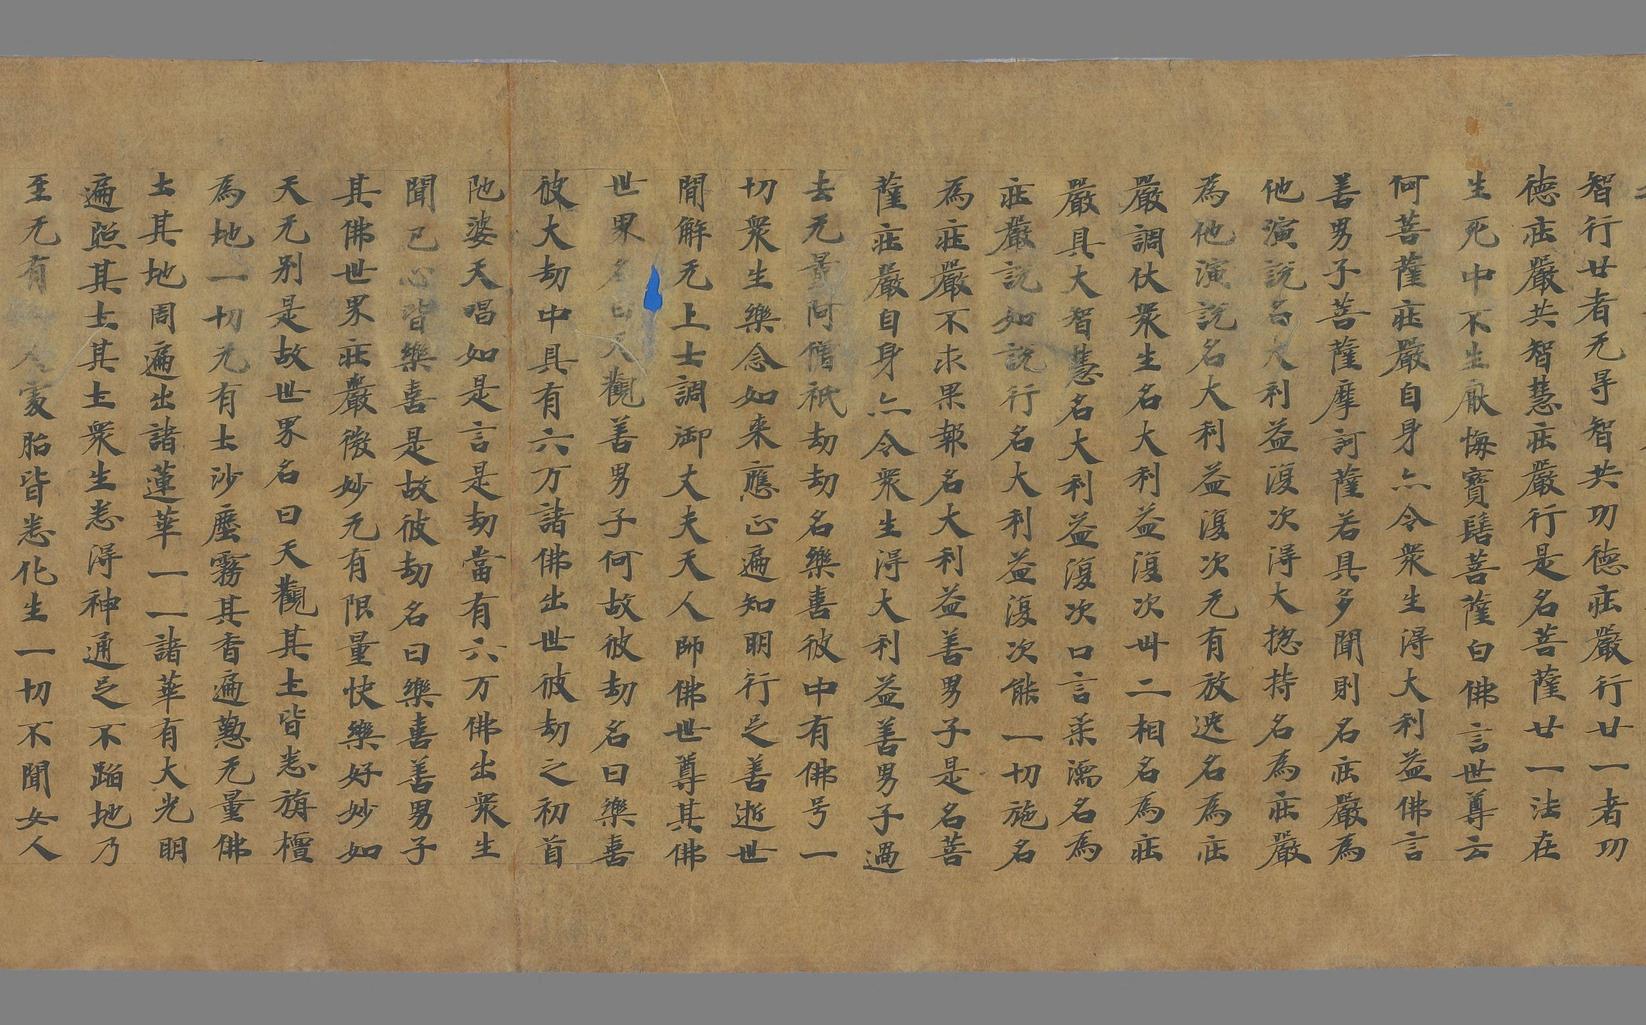 智行廿者无㝵智共功德疘嚴行廿一者功
德疘嚴共智慧疘嚴行是名菩薩廿一法在
生死中不生猒悔寶髻菩薩白佛言世尊云
何菩薩疘嚴自身亦令衆生淂大利益佛言
善男子菩薩摩訶薩若具多聞則名疘嚴為
他演說名大利益復次淂大揔持名為疘嚴
為他演說名大利益復次无有放逸名為疘
嚴調伏衆生名大利益復次卅二相名為疘
嚴具大智慧名大利益復次口言柔濡名為
疘嚴說如說行名大利益復次能一切施名
為疘嚴不求果報名大利益善男子是名菩
薩疘嚴自身亦令衆生淂大利益善男子過
去无量阿僧祇劫劫名樂喜彼中有佛号一
切衆生樂念如来應正遍知明行足善逝世
間解无上士調御丈夫天人師佛世尊其佛
世界名曰天觀善男子何故彼劫名曰樂喜
彼大劫中具有六万諸佛出世彼劫之初首
陁婆天唱如是言是劫當有六万佛出衆生
聞已心皆樂喜是故彼劫名曰樂喜善男子
其佛世界疘嚴微妙无有限量快樂好妙如
天无別是故世界名曰天觀其土皆悉旃檀
為地一切无有土沙塵霧其香遍懃无量佛
土其地周遍出諸蓮華一一諸華有大光明
遍照其土其土衆生悉淂神通足不蹈地乃
至无有 處胎皆悉化生一切不聞女人